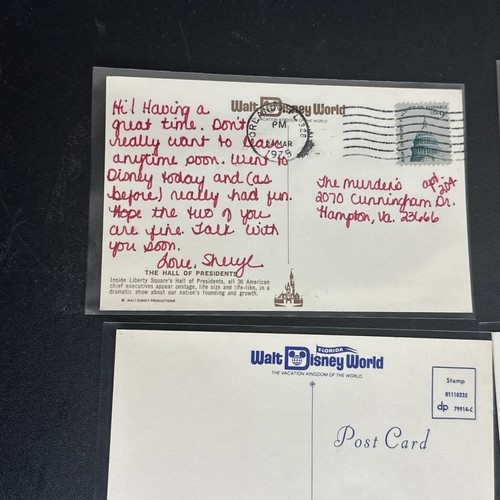 Hi! Having a
great time. Don't
really want to leave
anytime soon. Went to
Disney today and (as
before) really had fun.
Hope the two of you
are fine. Talk with
you soon.
Love, Sheryl
THE HALL OF PRESIDENTS
Inside Liberty Square's Hall of Presidents, all 36 American
chief executives appear onstage, life size and life-like, in a
dramatic show about our nation's founding and growth.
© WALT DISNEY PRODUCTIONS
Walt Disney World
VACATION KINGDOM OF THE WORLD
PM
MAR
The Murden's apt. 204
2070 Cunningham Dr.
Hampton, Va. 23666
FLORIDA
Walt Disney World
THE VACATION KINGDOM OF THE WORLD
Stamp
01110235
dp 79914-C
Post Card